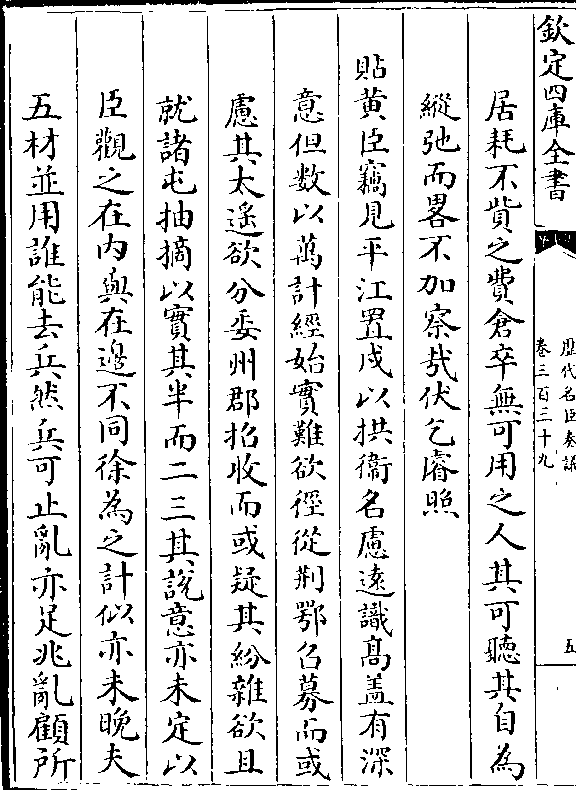 欽定四庫全書
歷代名臣奏議
卷三百三十九
五
居耗不貲之費倉卒無可用之人其可聽其自為
縱弛而畧不加察哉伏乞睿照
貼黄臣竊見平江置戍以拱衞名慮遠識髙盖有深
意但数以萬計經始實難欲徑從荆鄂召募而或
慮其太遥欲分委州郡招收而或疑其紛雜欲且
就諸屯抽摘以實其半而二三其說意亦未定以
臣觀之在内與在邉不同徐為之計似亦未晚夫
五材並用誰能去兵然兵可止亂亦足兆亂顧所